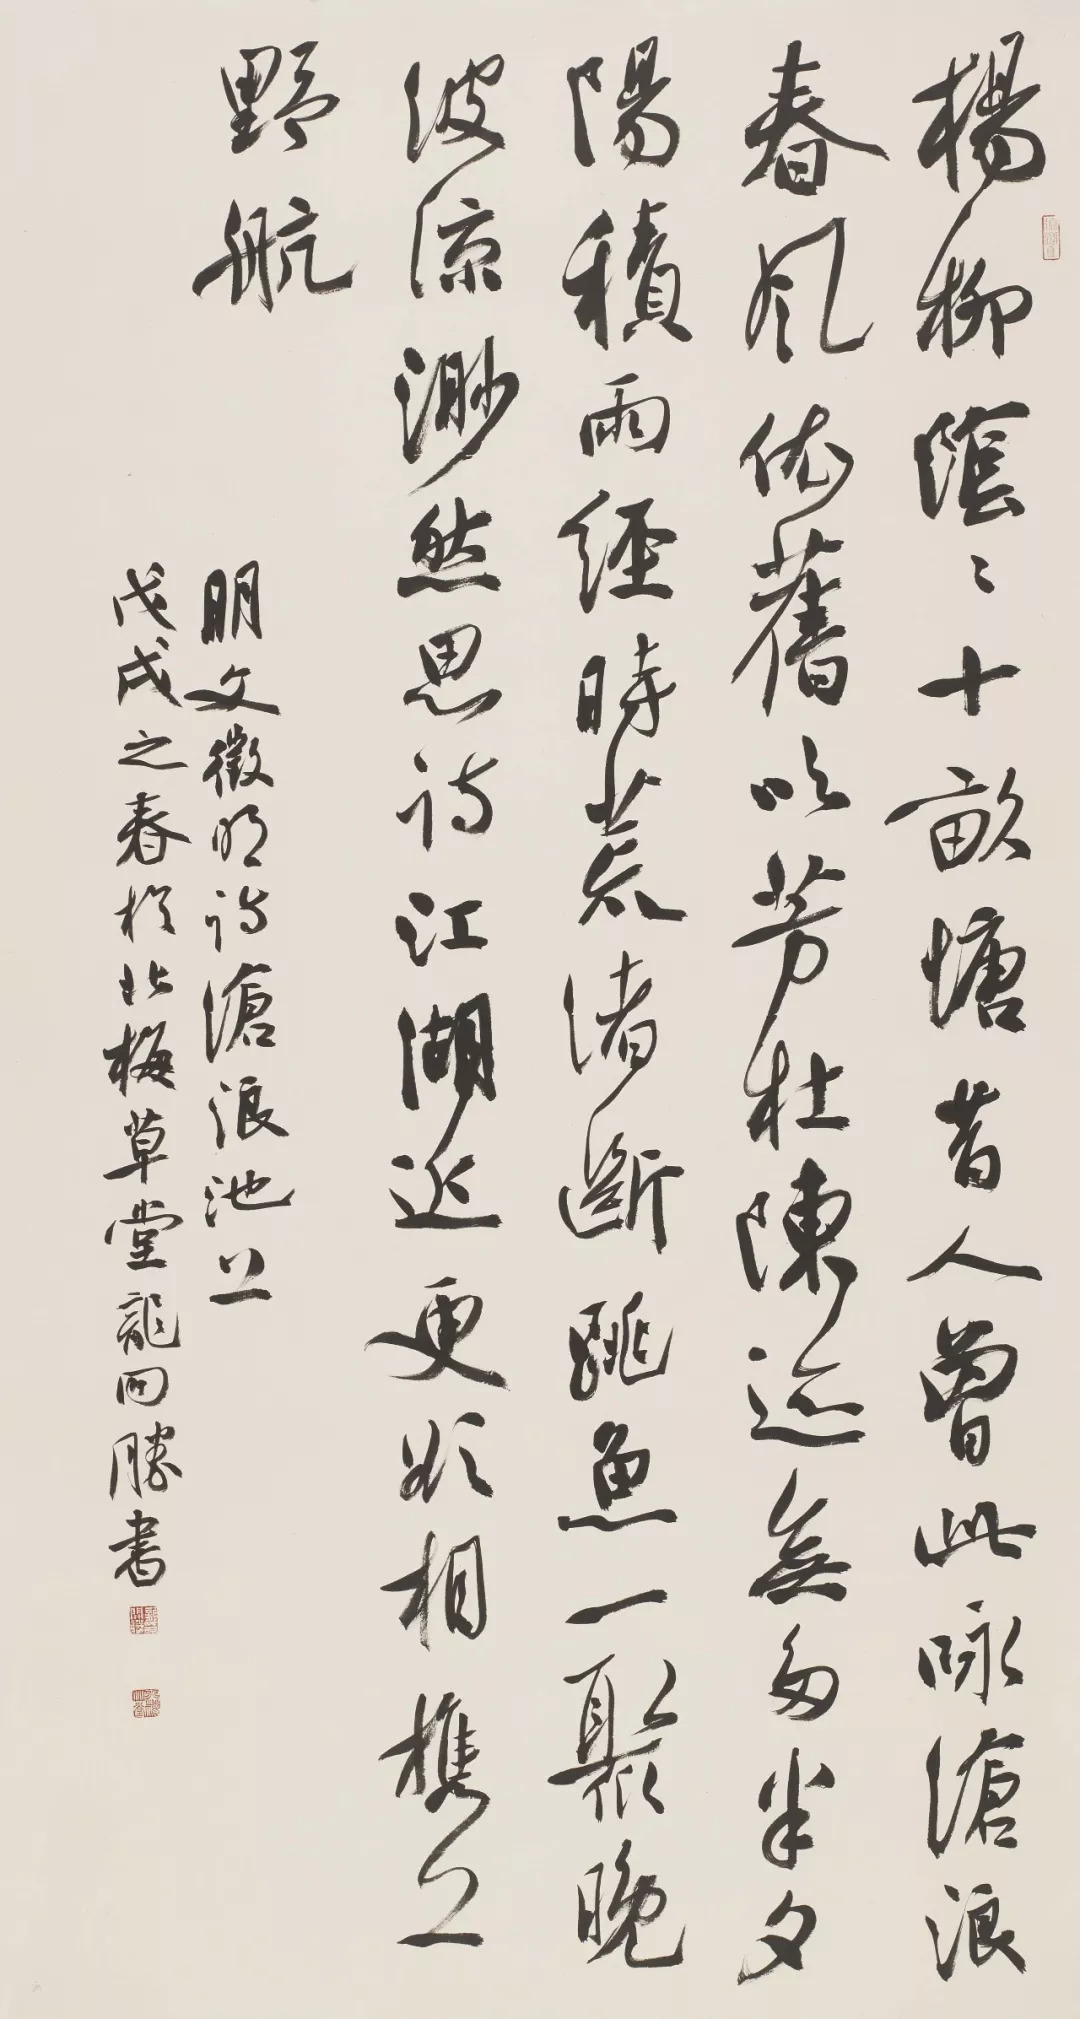 楊柳陰〻十畝塘昔人曾此咏滄浪
春風依舊吹芳杜陳迹無多半夕
陽積雨經時荒渚斷跳魚一聚晚
波涼渺然思詩江湖近更欲相攜上
野航
明文徵明詩滄浪池上
戊戌之春於北梅草堂龍開勝書